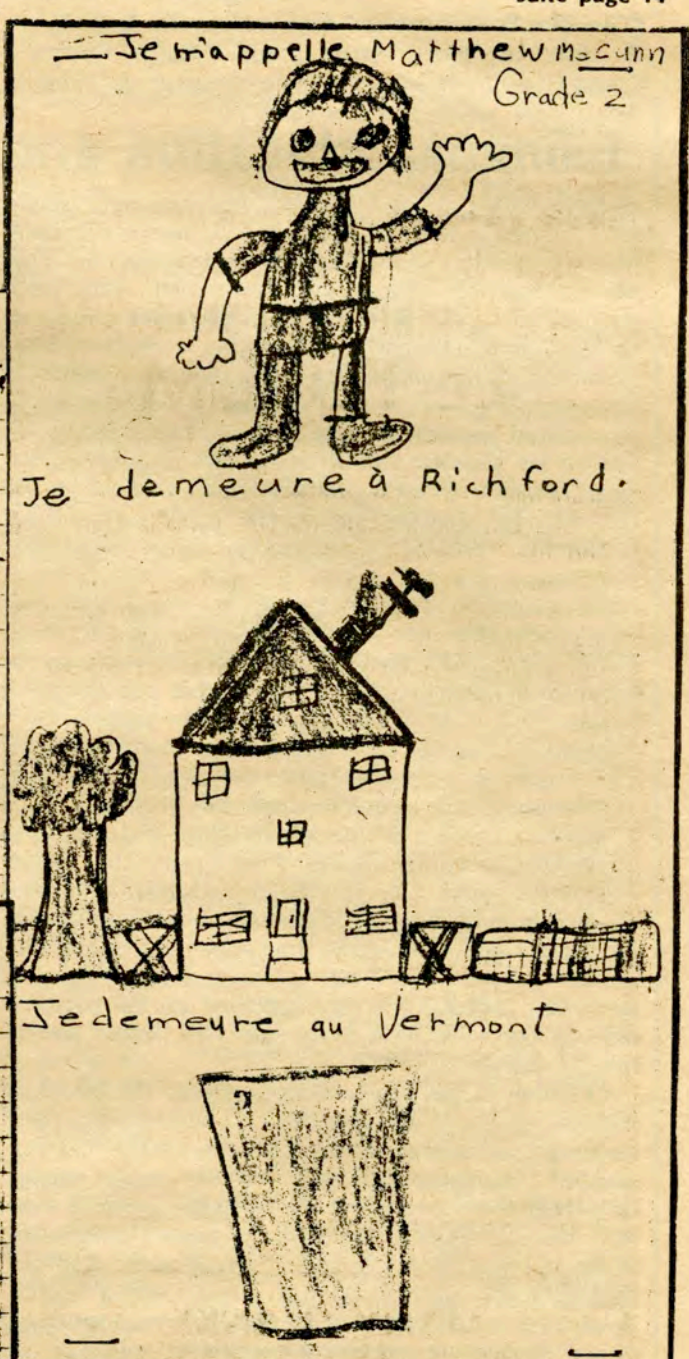 Je m'appelle Matthew McCunn
Grade 2
Je demeure à Richford.
Je demeure au Vermont.